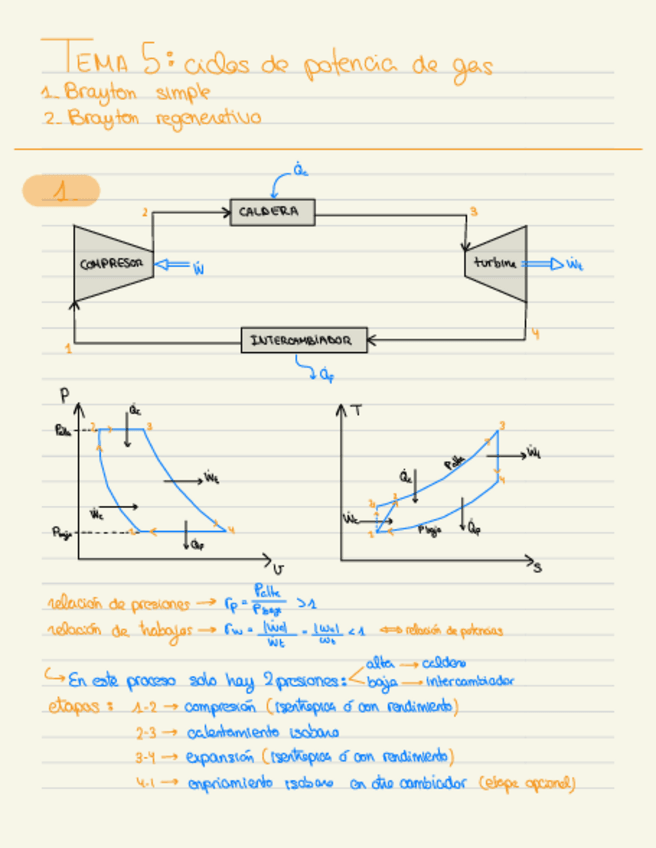 TEMA 5: ciclos de potencia de gas
1. Brayton simple
2. Brayton regenerativo
1.
Q̇c
2 CALDERA 3
COMPRESOR Ẇ turbina Ẇt
1 INTERCAMBIADOR 4
Q̇f
P T
Q̇c 3
Palta 2 3 Palta Ẇt
Ẇt Q̇c 4
Ẇc Ẇc Q̇f
Pbaja 1 4 1 Pbaja
Q̇f
v s
relación de presiones → rp = Palta / Pbaja > 1
relación de trabajos → rw = |Ẇc| / Ẇt = |wc| / wt < 1 ⟺ relación de potencias
↳ En este proceso solo hay 2 presiones: < alta → caldera
baja → intercambiador
etapas: 1-2 → compresión (isentrópica ó con rendimiento)
2-3 → calentamiento isobaro
3-4 → expansión (isentrópica ó con rendimiento)
4-1 → enfriamiento isobaro en otro cambiador (etapa opcional)